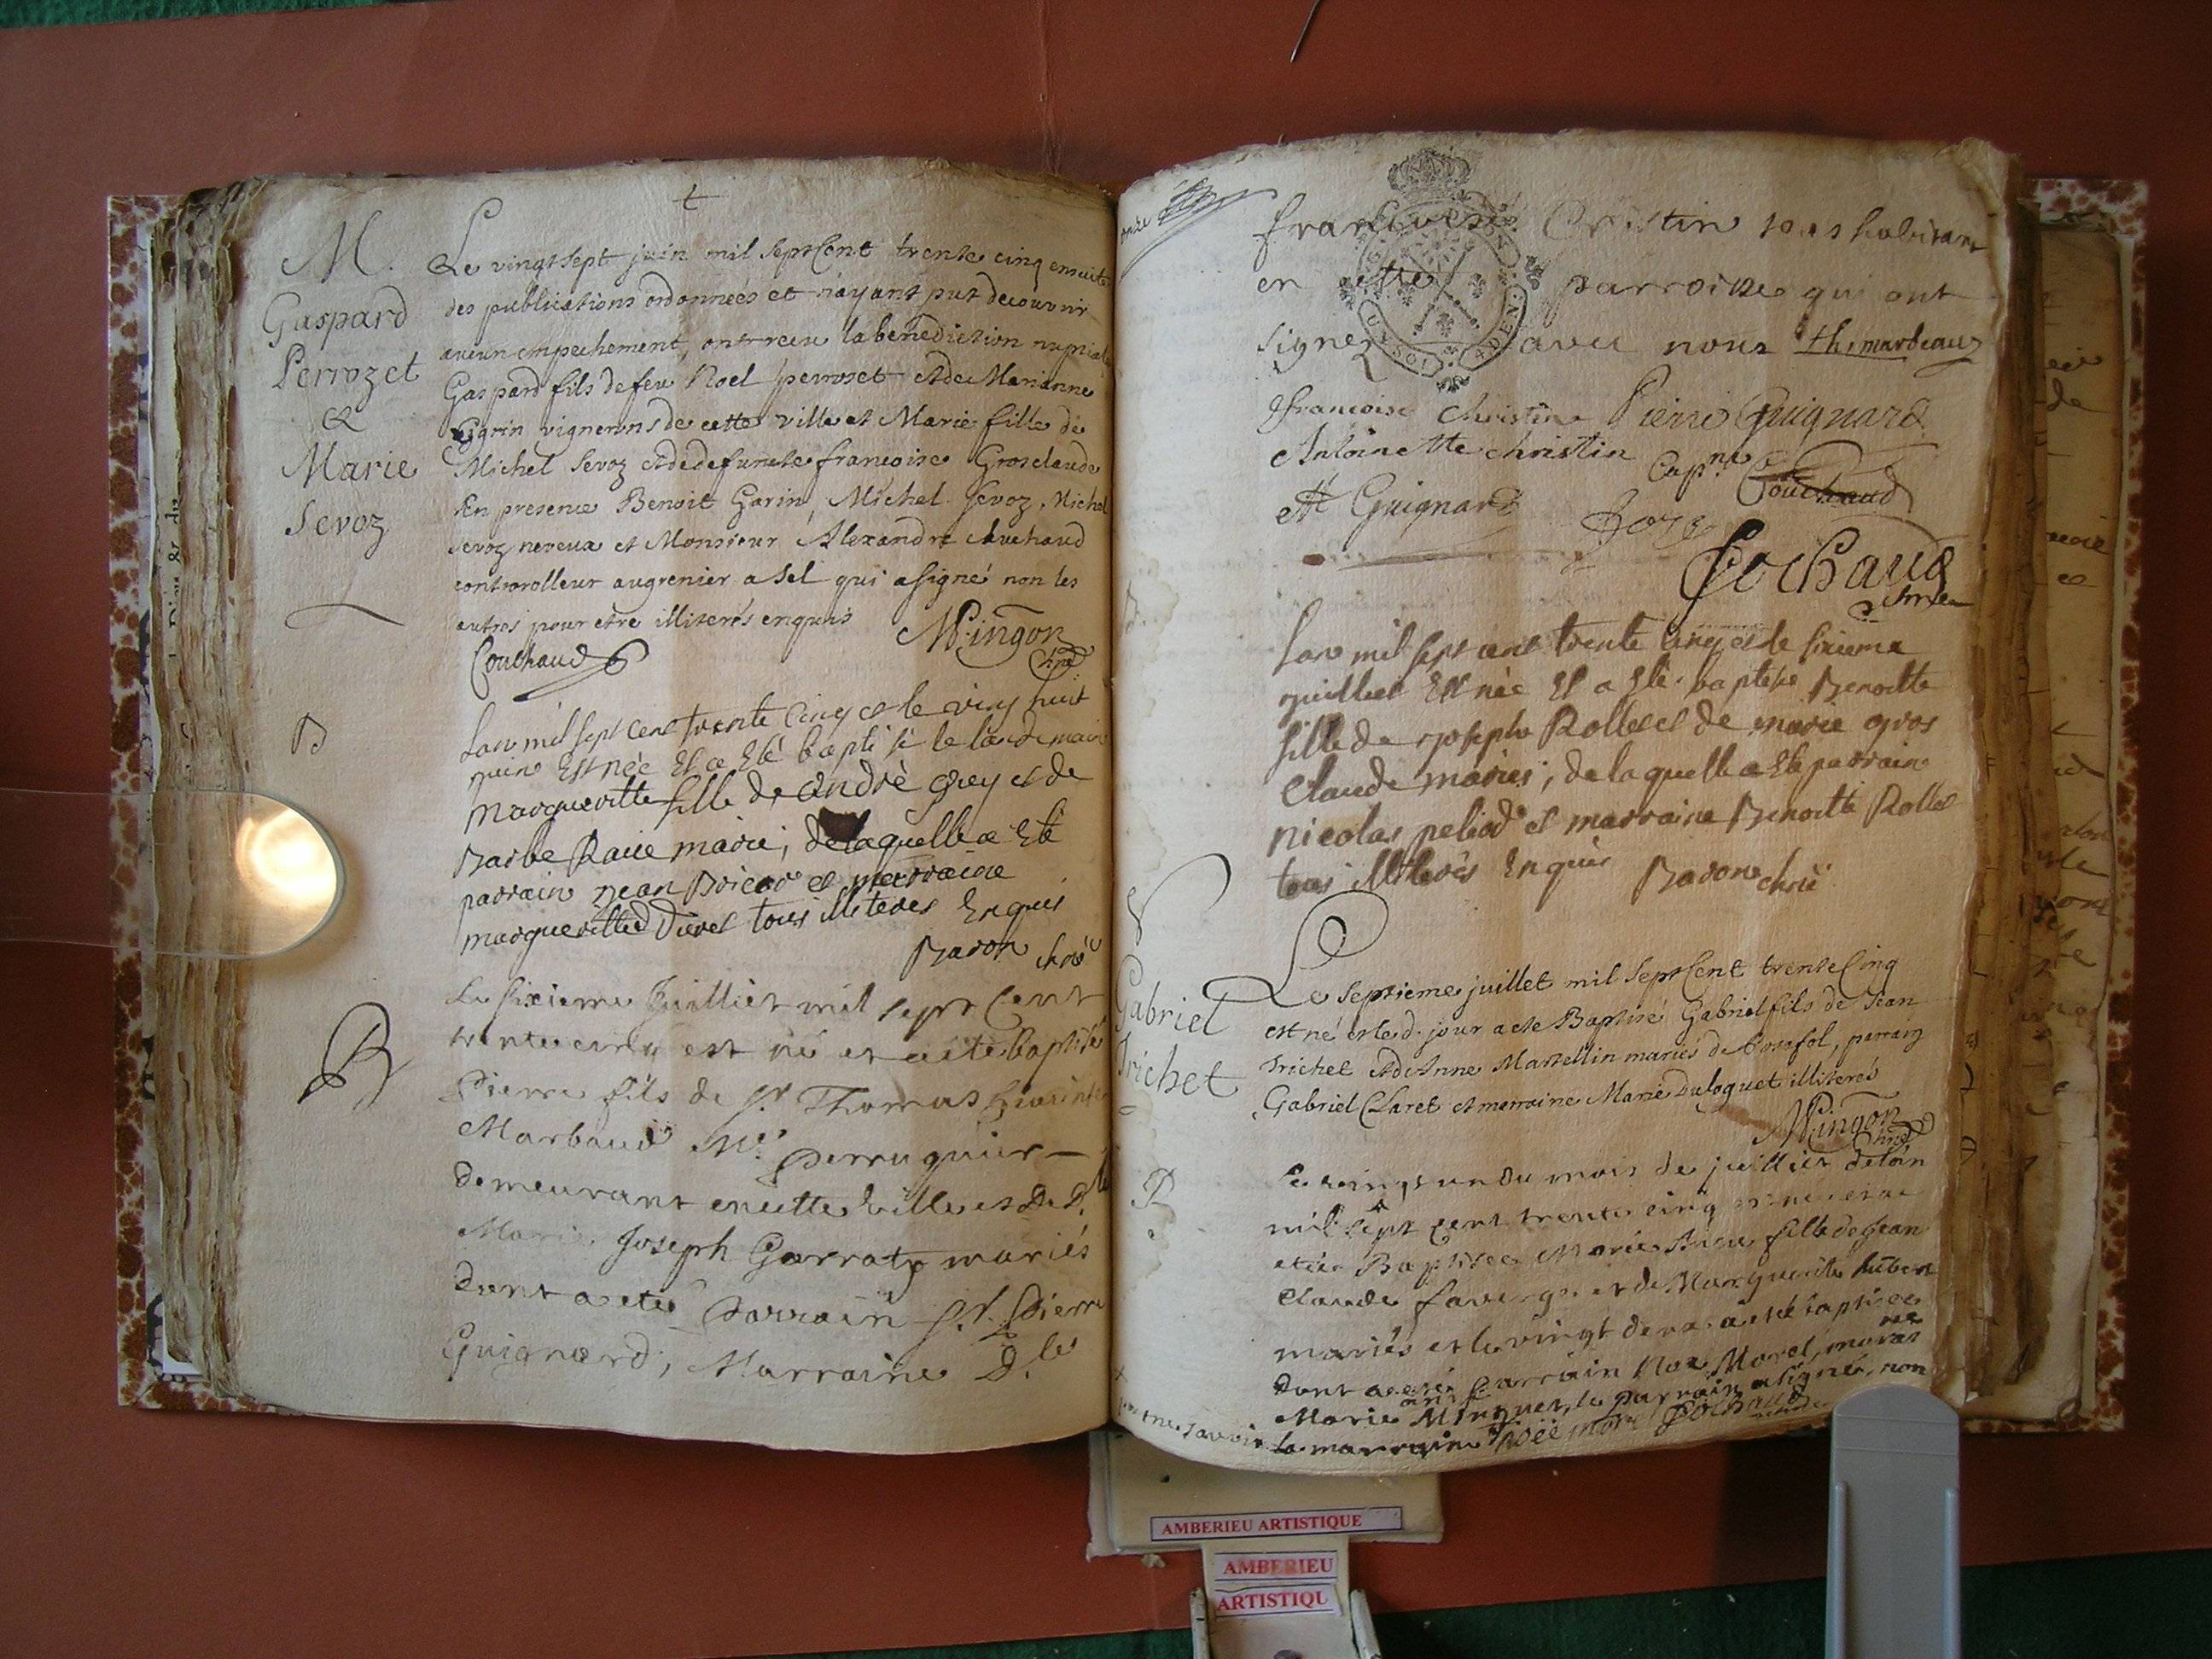 M.
Gaspard
Perrozet
&
Marie
Sevoz
Le vingt sept juin mil sept Cent trente cinq ensuite
des publications ordonneés et n'ayant put decouvrir
aucun empechement, ont receu la benediction nuptiale
Gaspard fils de feu Noel perroset et de Marianne
Garin vignerons de cette ville et Marie fille de
Michel Sevoz et de defuncte francoise Grosclaude
En presence Benoit Garin, Michel Sevoz, Michel
Sevoz neveux et Monsieur Alexandre Couchaud
controrolleur au grenier a Sel qui a signé non les
autres pour etre illiterés enquis
Mingon
Couchaud
B
Lan mil sept cent trente cinq et le ving huit
juin Est née Et a Eté baptisé le landemain
Margueritte fille de André grey et de
Barbe Racie mariés; de laquelle a Eté
parrain Jean et marraine
margueritte tous illiteres Enquis
Baron
B
Le sixieme Juilliet mil sept Cent
trente cinq est né et a eté baptisé
Pierre fils de Sr. Thomas
Marbaud Me. perruquier
demeurant en cette ville et de D.lle
Marie Joseph Garratz mariés
dont a eté Parrain Sr. Pierre
Guignard, Marraine D.le
francoise Cristin tous habitant
en cette parroisse qui ont
signez avec nous th. mardeaux
francoise christine Pierre Guignard
Antoinette christin Cap.ne Couchaud
Guignard
Cochaud
Lan mil sept cent trente cinq et le sixieme
juilliet Est née Et a Eté baptisée Benoitte
fille de joseph Rollet et de marie gros
Claude mariés; de laquelle a Eté parrain
nicolas peliod et marraine Benoitte Rollet
tous illiterés Enquis Baron
Gabriel
Trichet
Le septieme juillet mil sept Cent trente Cinq
est né et led. jour a ete Baptisé Gabriel fils de Jean
Trichet et de Anne Martellin mariés de , parrain
Gabriel Claret et merraine Marie Duloquet illiterés
Mingon
B
Le vingt un du mois de juilliet de l'an
mil sept cent trente cinq est née et a
etée Baptisée Marie Anne fille de Jean
Claude faverge et de Marguerite hubert
mariés et le vingt deux a eté baptisée
dont a eté parrain Noe Morel, marraine
Marie Minguet, le parrain a signé, non
la marraine Noë morel Cochaud
AMBERIEU ARTISTIQUE
AMBERIEU
ARTISTIQU